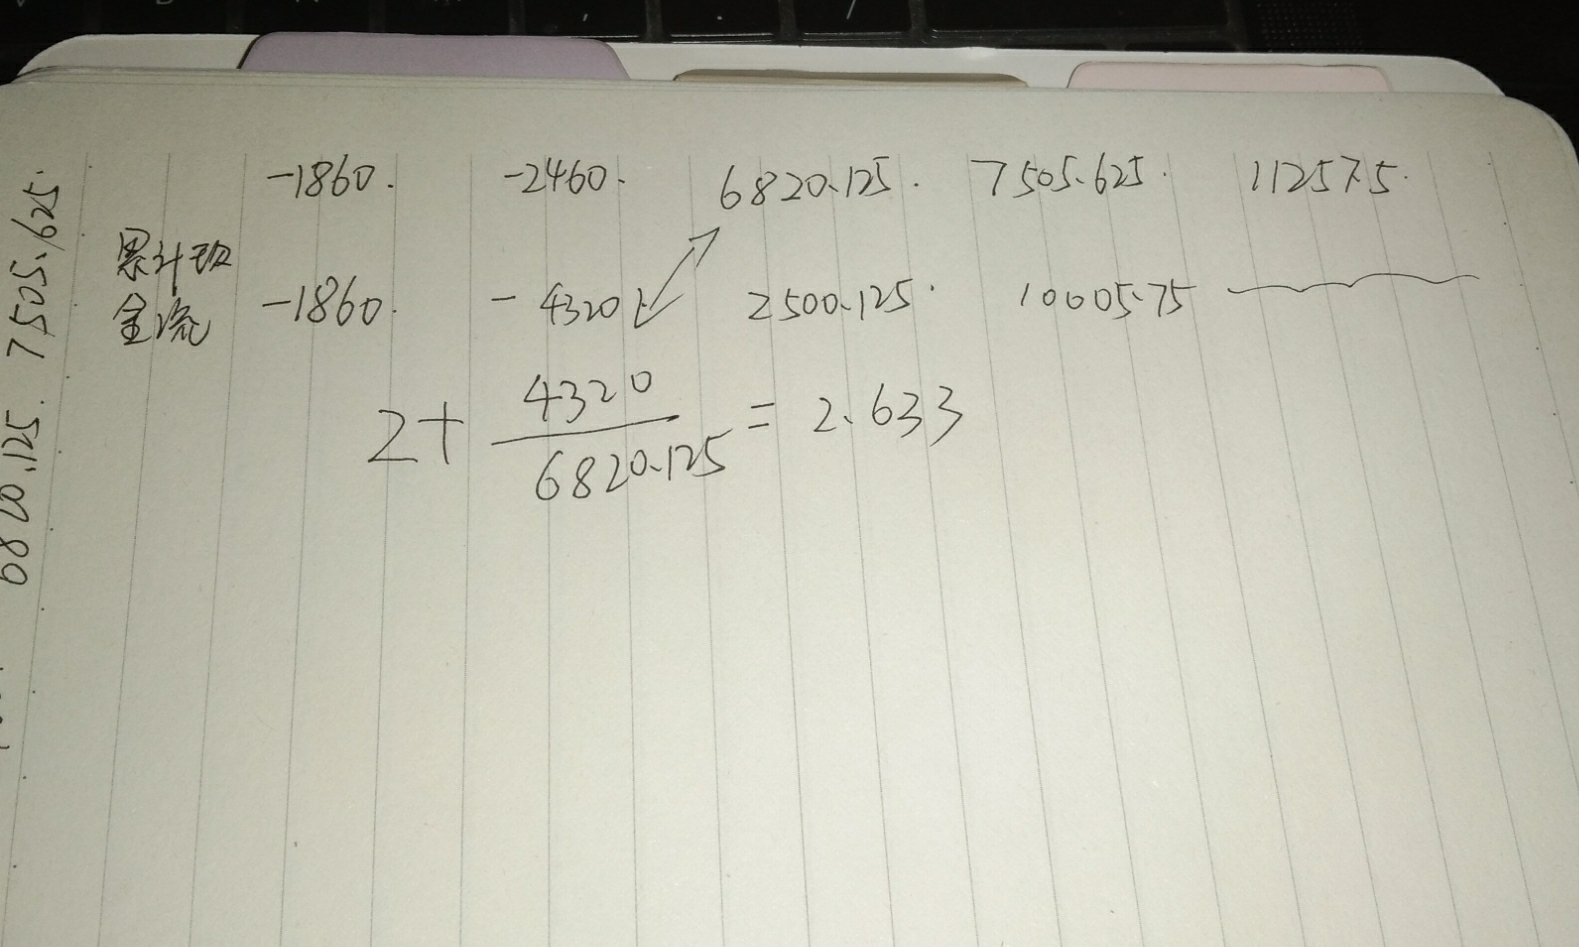 -1860. -2460. 6820.125. 7505.625. 11257.5.
累计现
金流 -1860. -4320 2500.125. 10005.75
2+ 4320/6820.125 = 2.633
6820.125. 7505.625.